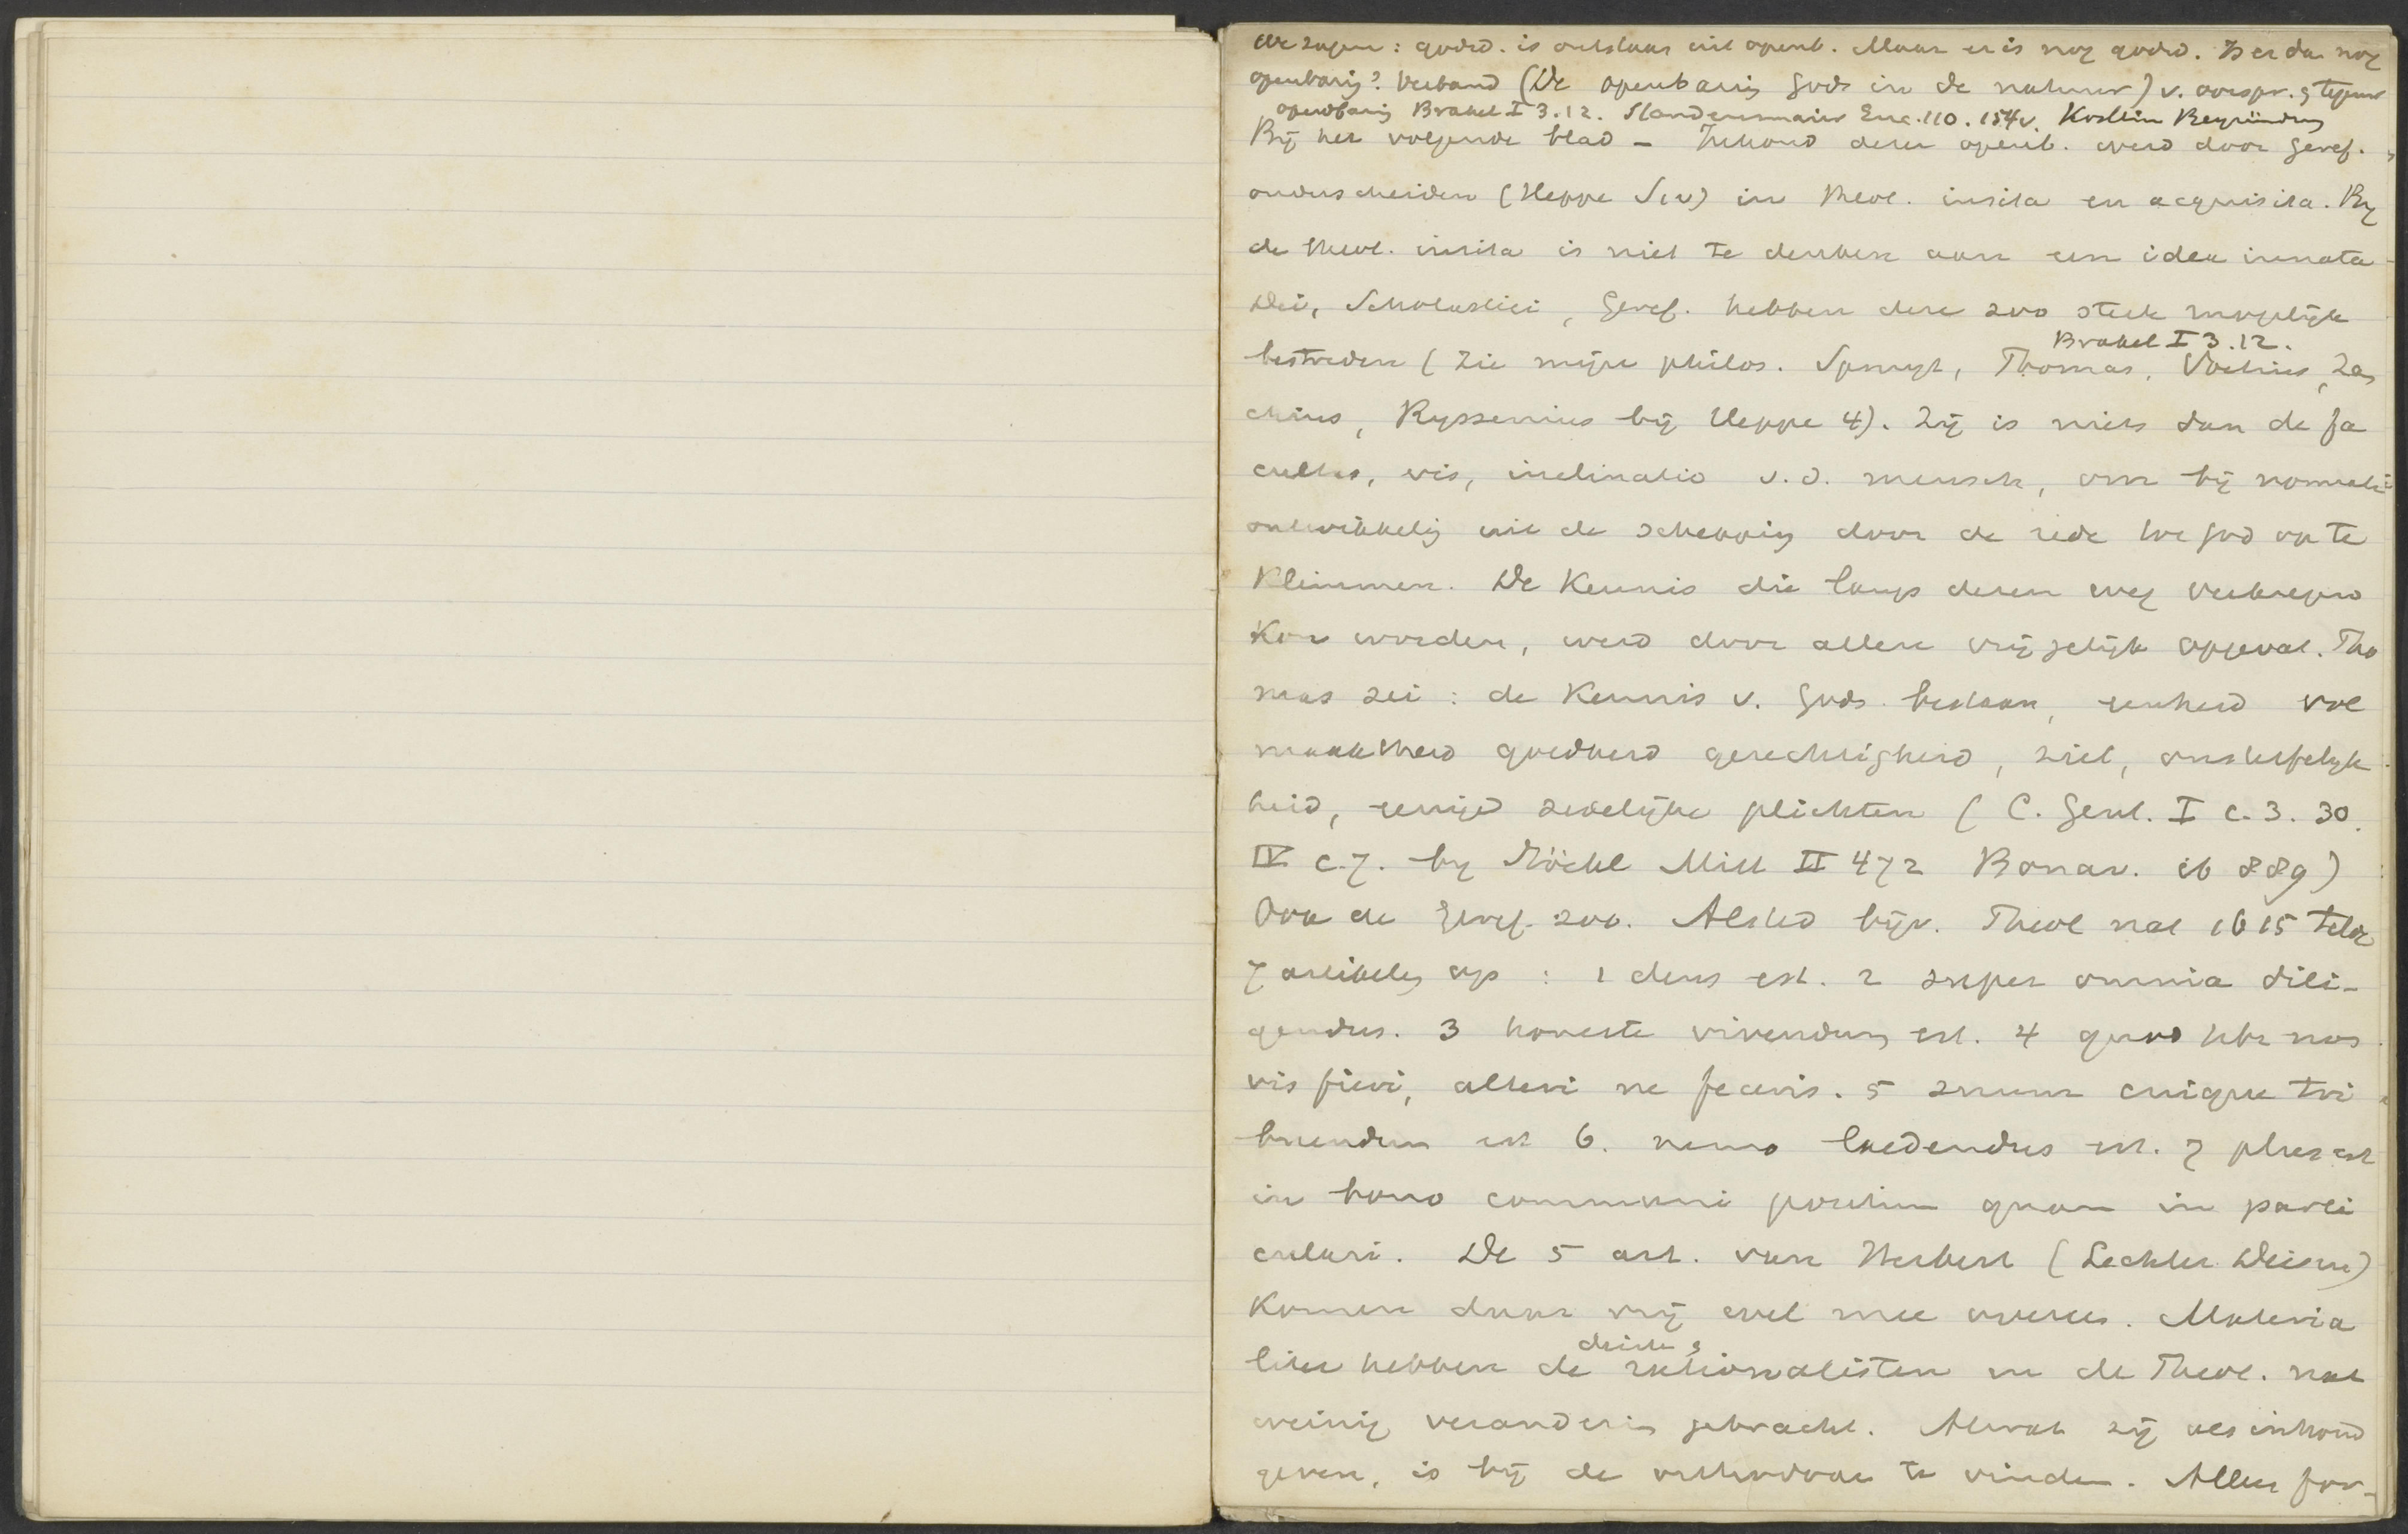 We zagen: godsd. is ontstaan uit openb. Maar er is nog godsd. Is er dan nog
openbaring? Verband (De openbaring Gods in de natuur) v. oorspr. & tegenw
openbaring Brakel I 3.12. Staudenmaier Enc. 110. 154v. Köstlin Begründung
Bij het volgende blad – Inhoud dezer openb. werd door Geref.
onderscheiden (Heppe 1 v) in theol. insita en acquisita. By
de theol. insita is niet te denken aan een idea innata
Dei, Scholastici, Geref. hebben deze zoo sterk mogelijk
Brakel I 3.12.
bestreden (Zie mijne philos. Spruyt, Thomas, Voetius, Zan
chius, Ryssenius bij Heppe 4). Zij is niets dan de fa
cultas, vis, inclinatio v.d. mensch, om bij normale
ontwikkeling uit de schepping door de rede tot God op te
klimmen. De Kennis die langs dezen weg verkregen
kon worden, werd door allen vrij gelijk opgevat. Tho
mas zei: de Kennis v. Gods bestaan, eenheid vol
maaktheid goedheid gerechtigheid, ziel, onsterfelijk
heid, eenige zedelijke plichten (C. Gent. I c. 3. 30.
IV c. 7. by Stöckl Mitt II 472 Bonav. ib 889)
Ook de Geref. zoo. Alsted bijv. Theol nat 1615 telde
7 artikelen op: 1 deus est. 2 super omnia dili-
gendus. 3 honeste vivendum est. 4 quod tibi non
vis fieri, alteri ne feceris. 5 suum cuique tri
buendum est 6. nemo laedendus est. 7 plus est
in bono communi positum quam in parti
culari. De 5 art. van Herbert (Lechler Deisme)
komen daar vrij wel mee overeen. Materia
deisten &
liter hebben de rationalisten in de Theol. nat
weinig verandering gebracht. Alwat zij als inhoud
geven, is bij de orthodoxe te vinden. Alleen for-